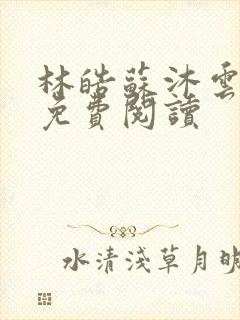 林皓蘇沐雲
免費閱讀
水清淺草月映